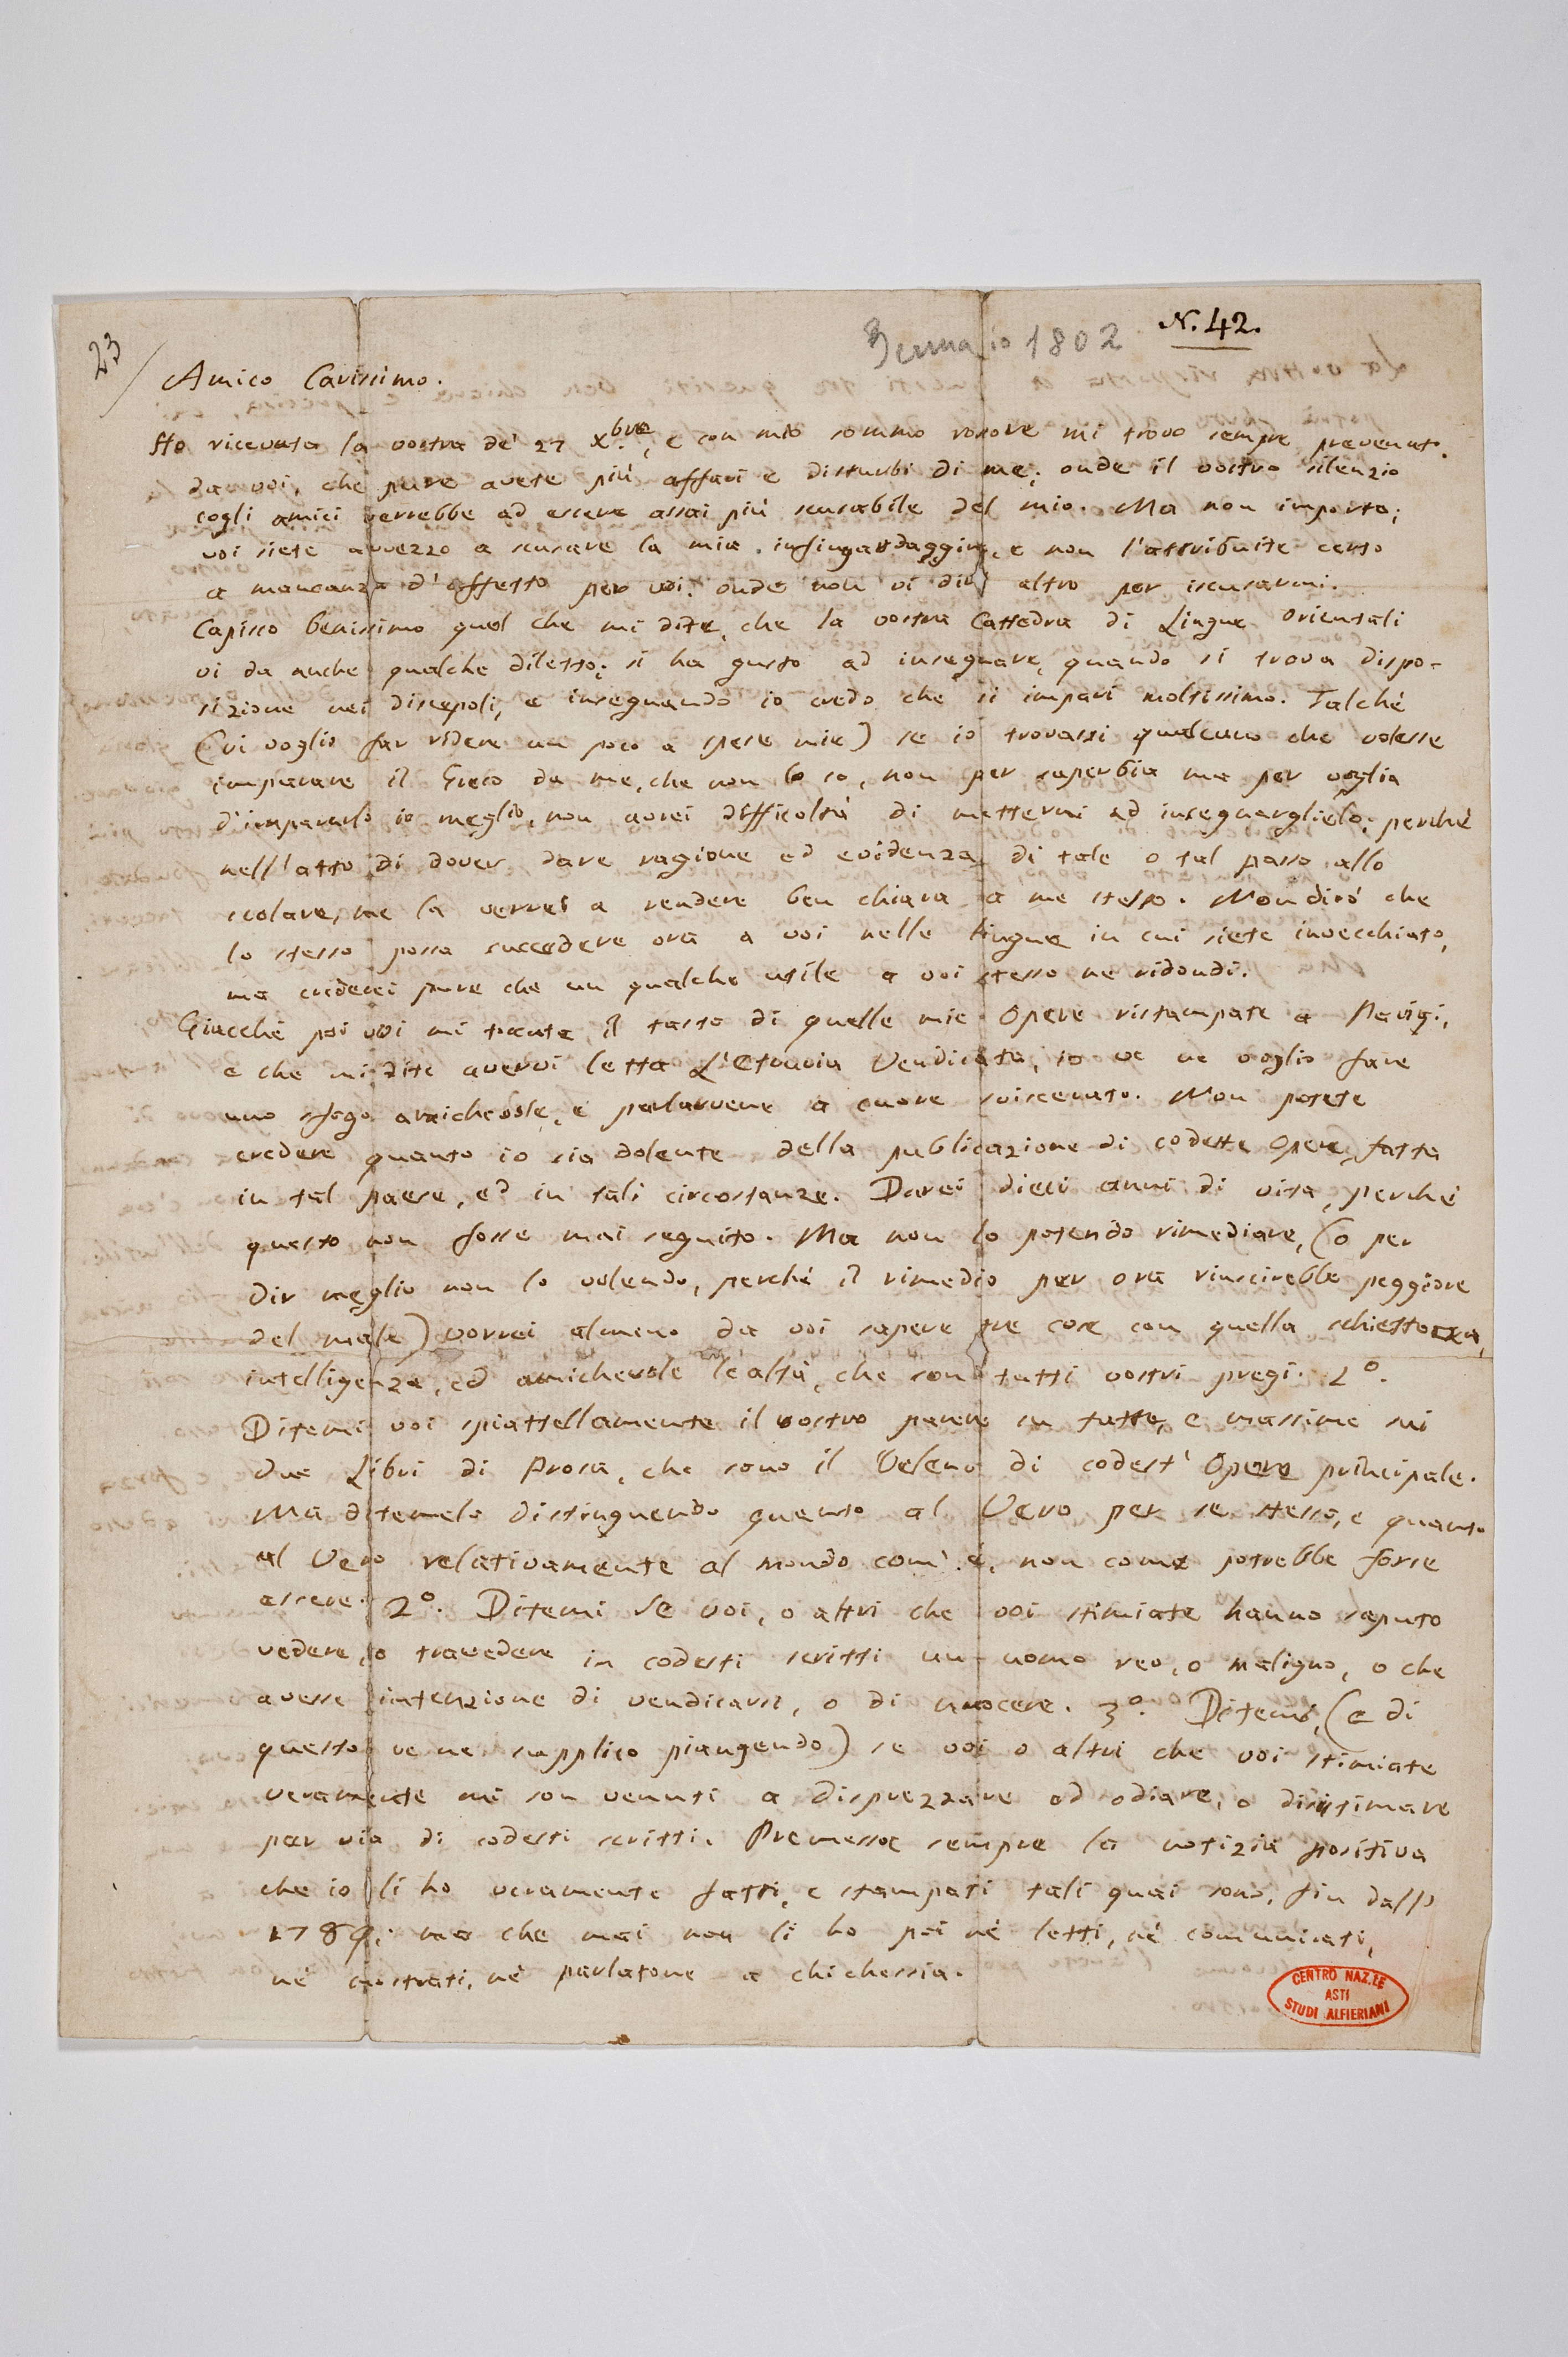 23
Gennaio 1802
N. 42.
Amico Carissimo.
Ho ricevuta la vostra de' 27 Xbre, e con mio sommo rossore mi trovo sempre prevenuto
da voi, che pure avete più affari e disturbi di me; onde il vostro silenzio
cogli amici verrebbe ad essere assai più scusabile del mio. Ma non importa;
voi siete avvezzo a scusare la mia infingardaggine, e non l'attribuite certo
a mancanza d'affetto per voi: onde non vi dirò altro per iscusarmi.
Capisco benissimo quel che mi dite, che la vostra Cattedra di Lingue Orientali
vi da anche qualche diletto; si ha gusto ad insegnare, quando si trova dispo-
sizione nei discepoli, e insegnando io credo che si impari moltissimo. Talché
(vi voglio far ridere un poco a spese mie) se io trovassi qualcuno che volesse
imparare il Greco da me, che non lo so, non per superbia ma per voglia
d'impararlo io meglio, non avrei difficoltà di mettermi ad insegnarglielo; perché
nell'atto di dover dare ragione ed evidenza di tale o tal passo allo
scolare, me la verrei a rendere ben chiara a me stesso. Non dirò che
lo stesso possa succedere ora a voi nelle Lingue in cui siete invecchiato,
ma crederei pure che un qualche utile a voi stesso ne ridondi.
Giacché poi voi mi toccate il tasto di quelle mie Opere ristampate a Parigi,
e che mi dite avervi letta L'Etruria Vendicata, io ve ne voglio fare
uno sfogo amichevole, e parlarvene a cuore sviscerato. Non potete
credere quanto io sia dolente della publicazione di codeste Opere, fatta
in tal paese, ed in tali circostanze. Darei dieci anni di vita, perché
questo non fosse mai seguito. Ma non lo potendo rimediare, (o per
dir meglio non lo volendo, perché il rimedio per ora riuscirebbe peggiore
del male) vorrei almeno da voi sapere tre cose con quella schiettezza,
intelligenza, ed amichevole lealtà, che son tutti vostri pregi. 1º.
Ditemi voi spiattellamente il vostro parere su tutte, e massime sui
due Libri di Prosa, che sono il Veleno di codest' Opere principale.
Ma ditemelo distinguendo quanto al Vero per se stesso, e quanto
al Vero relativamente al mondo com' è, non come potrebbe forse
essere. 2º. Ditemi se voi, o altri che voi stimiate hanno saputo
vedere, o travedere in codesti scritti un uomo reo, o maligno, o che
avesse intenzione di vendicarsi, o di nuocere. 3º. Ditemi, (e di
questo ve ne supplico piangendo) se voi o altri che voi stimiate
veramente mi son venuti a disprezzare od odiare, o disistimare
per via di codesti scritti. Premessa sempre la notizia positiva
che io li ho veramente fatti, e stampati tali quai sono, fin dall'
1789; ma che mai non li ho poi né letti, né comunicati,
né mostrati, né parlatone a chichessia.
CENTRO NAZ.LE
ASTI
STUDI ALFIERIANI